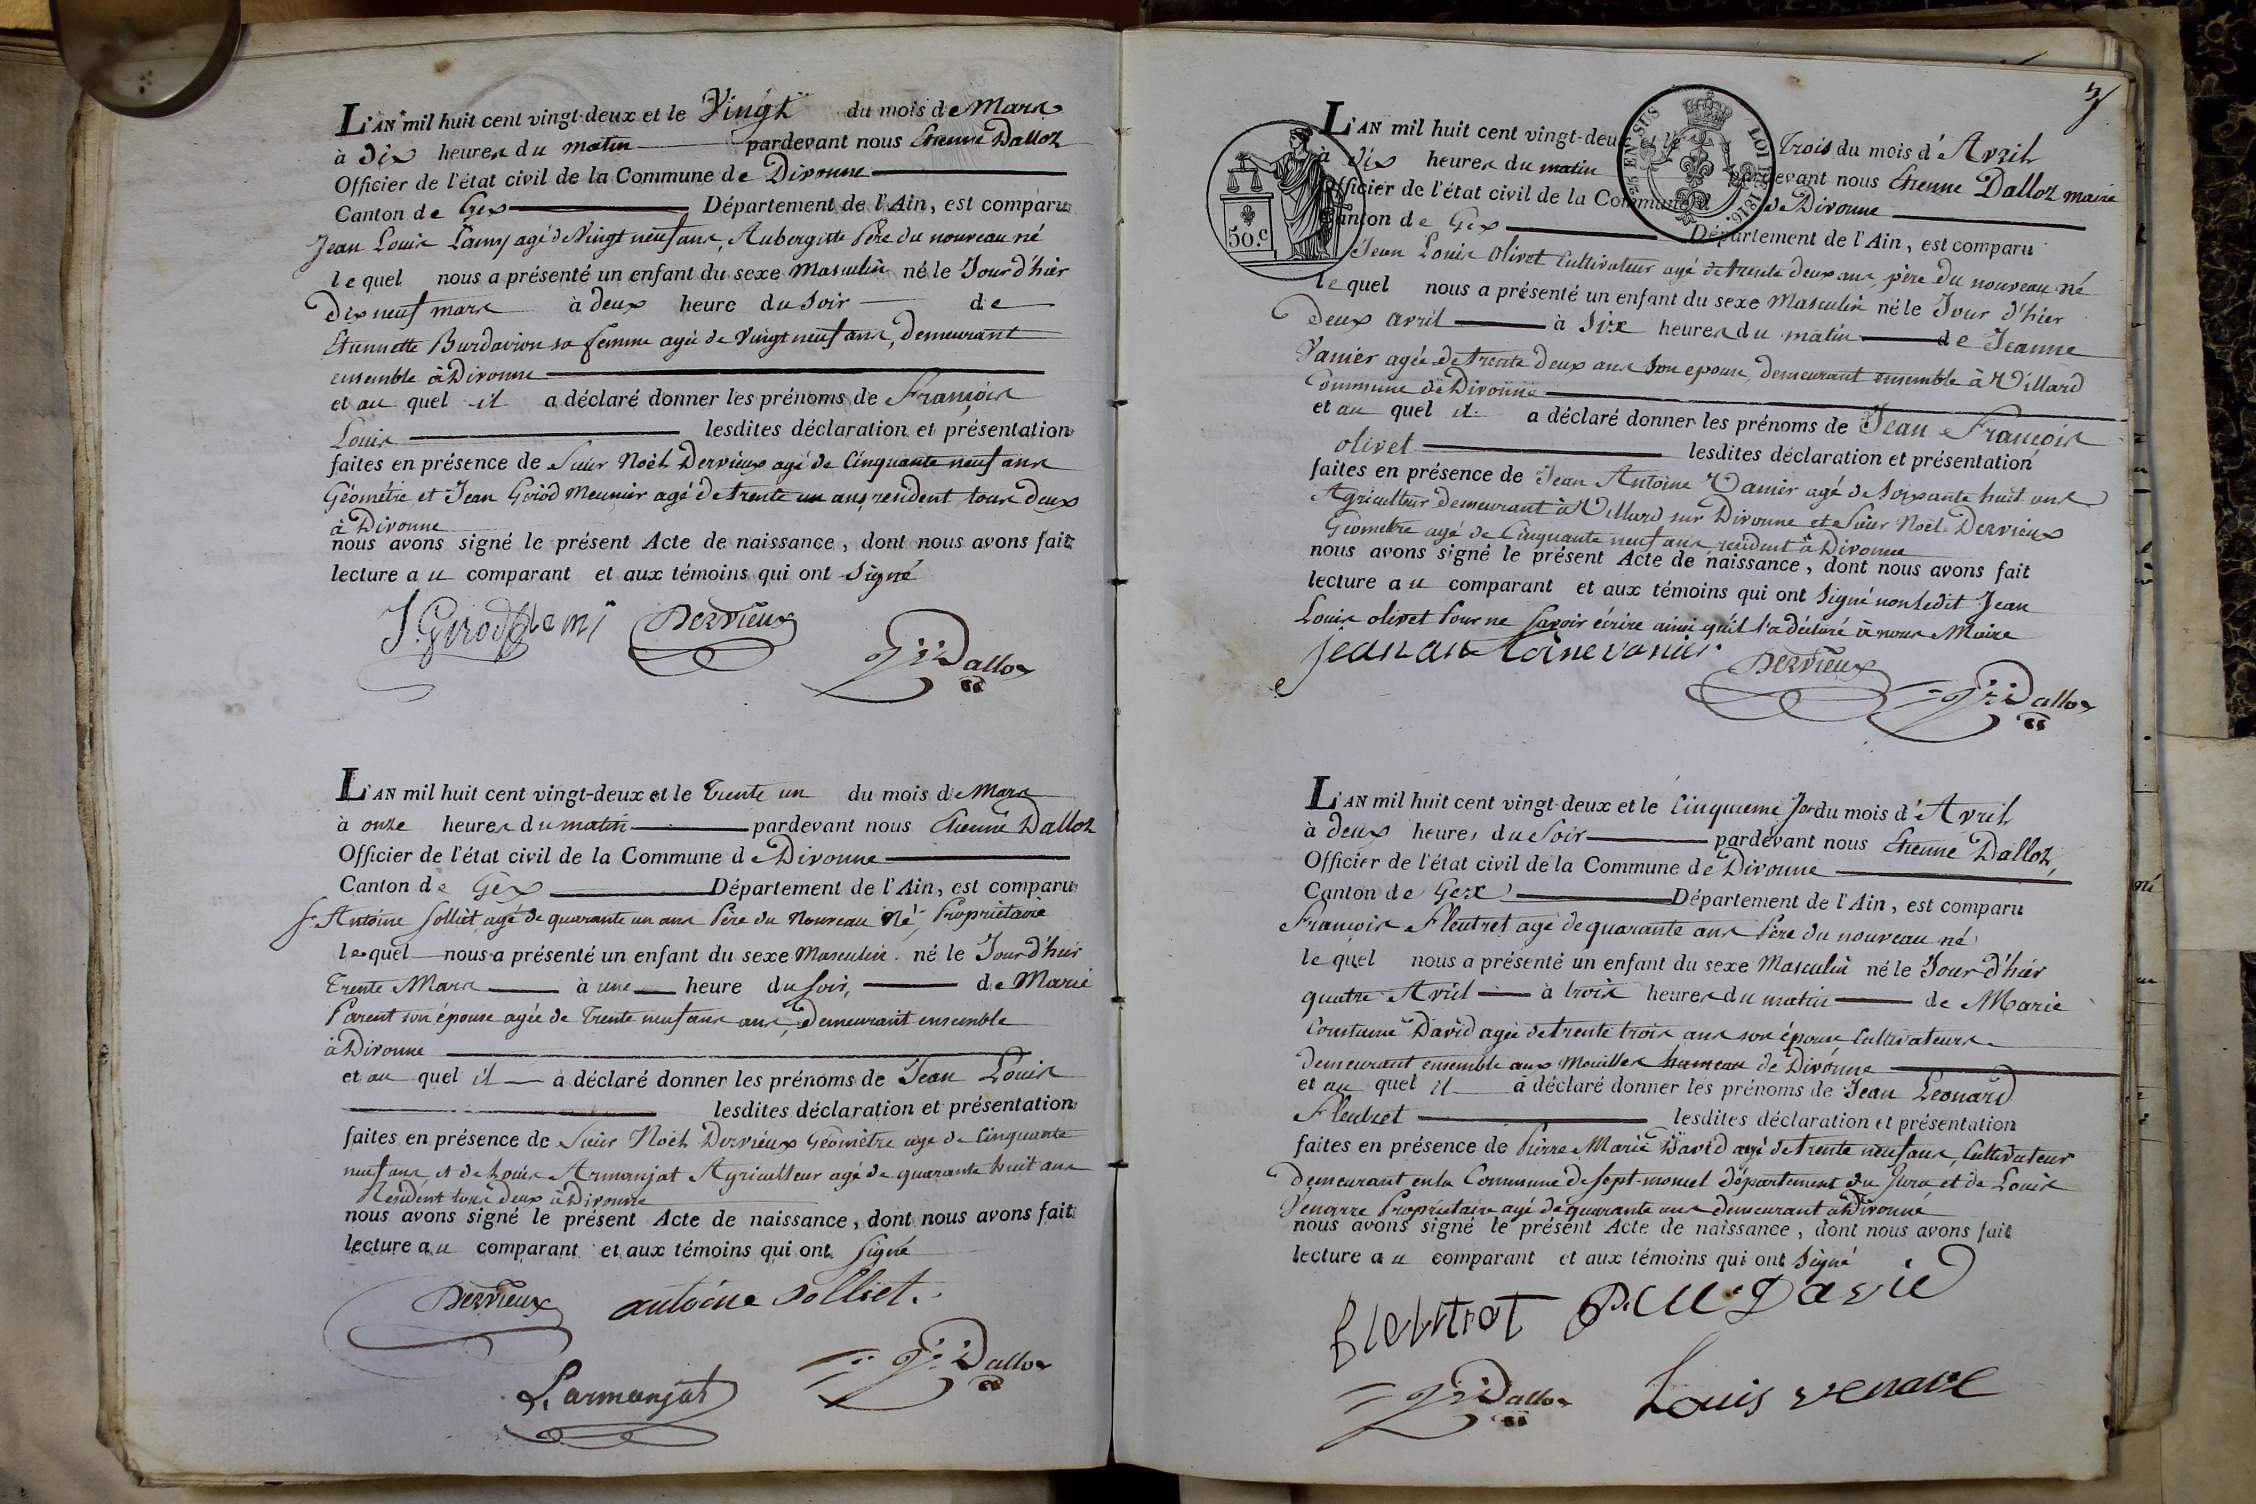 L'AN mil huit cent vingt-deux et le Vingt du mois de Mars
à Dix heures du matin pardevant nous Etienne Dalloz
Officier de l'état civil de la Commune de Divonne
Canton de Gex Département de l'Ain, est comparu
Jean Louis Lamy agé de Vingt neuf ans, Aubergiste Père du nouveau né
lequel nous a présenté un enfant du sexe Masculin né le Jour d'hier
Dix neuf mars à deux heure du Soir de
Etiennette Burdavion sa femme agée de Vingt neuf ans, demeurant
ensemble à Divonne
et au quel il a déclaré donner les prénoms de François
Louis lesdites déclaration et présentation
faites en présence de Sieur Noël Dervieux agé de Cinquante neuf ans
Géomètre et Jean Girod Meunier agé de trente un ans, resident tous deux
à Divonne
nous avons signé le présent Acte de naissance, dont nous avons fait
lecture au comparant et aux témoins qui ont Signé
J. Girod Dervieux
Dalloz
L'AN mil huit cent vingt-deux et le Trente un du mois de Mars
à onze heures du matin pardevant nous Etienne Dalloz
Officier de l'état civil de la Commune de Divonne
Canton de Gex Département de l'Ain, est comparu
Sr. Antoine Solliet, agé de quarante un ans Père du Nouveau Né, Propriétaire
lequel nous a présenté un enfant du sexe Masculin né le Jour d'hier
Trente Mars à une heure du Soir, de Marie
Parent son épouse agée de Trente neuf ans ans, Demeurant ensemble
à Divonne
et au quel il a déclaré donner les prénoms de Jean Louis
lesdites déclaration et présentation
faites en présence de Sieur Noël Dervieux Géomètre agé de Cinquante
neuf ans, et de Louis Armanjat Agriculteur agé de quarante huit ans
Résident tous deux à Divonne
nous avons signé le présent Acte de naissance, dont nous avons fait
lecture au comparant et aux témoins qui ont Signé
Dervieux antoine Solliet.
Dalloz
L. armanjat
50.c
EN SUS
LOI DE 1816.
L'AN mil huit cent vingt-deux et le Trois du mois d'Avril
à dix heures du matin pardevant nous Etienne Dalloz maire
Officier de l'état civil de la Commune de Divonne
Canton de Gex Département de l'Ain, est comparu
Jean Louis olivet Cultivateur agé de trente deux ans, père du nouveau né
lequel nous a présenté un enfant du sexe Masculin né le Jour d'hier
Deux avril à Six heures du matin de Jeanne
Vanier agée de trente deux ans Son epouse, demeurant ensemble à Villard
Commune de Divonne
et au quel il a déclaré donner les prénoms de Jean François
olivet lesdites déclaration et présentation
faites en présence de Jean Antoine Vanier agé de Soixante huit ans
Agriculteur demeurant à Villard sur Divonne et Sieur Noël Dervieux
Géomètre agé de Cinquante neuf ans, resident à Divonne
nous avons signé le présent Acte de naissance, dont nous avons fait
lecture au comparant et aux témoins qui ont Signé non ledit Jean
Louis olivet Pour ne Savoir écrire ainsi qu'il l'a déclaré à nous Maire
jean antoine vanier
Dervieux
Dalloz
L'AN mil huit cent vingt-deux et le Cinquieme Jor du mois d'Avril
à deux heures du Soir pardevant nous Etienne Dalloz,
Officier de l'état civil de la Commune de Divonne
Canton de Gex Département de l'Ain, est comparu
François Fleutret agé de quarante ans Père du nouveau né
lequel nous a présenté un enfant du sexe Masculin né le Jour d'hier
quatre Avril à trois heures du matin de Marie
Constance David agée de trente trois ans son épouse, Cultivateurs
demeurant ensemble aux Mouilles hameau de Divonne
et au quel il a déclaré donner les prénoms de Jean Leonard
Fleutret lesdites déclaration et présentation
faites en présence de Pierre Marie David agé de trente neuf ans, Cultivateur
demeurant en la Commune de Sept-moncel département du Jura et de Louis
Venarre Propriétaire agé de quarante ans demeurant à Divonne
nous avons signé le présent Acte de naissance, dont nous avons fait
lecture au comparant et aux témoins qui ont Signé
David
Dalloz
Louis venare